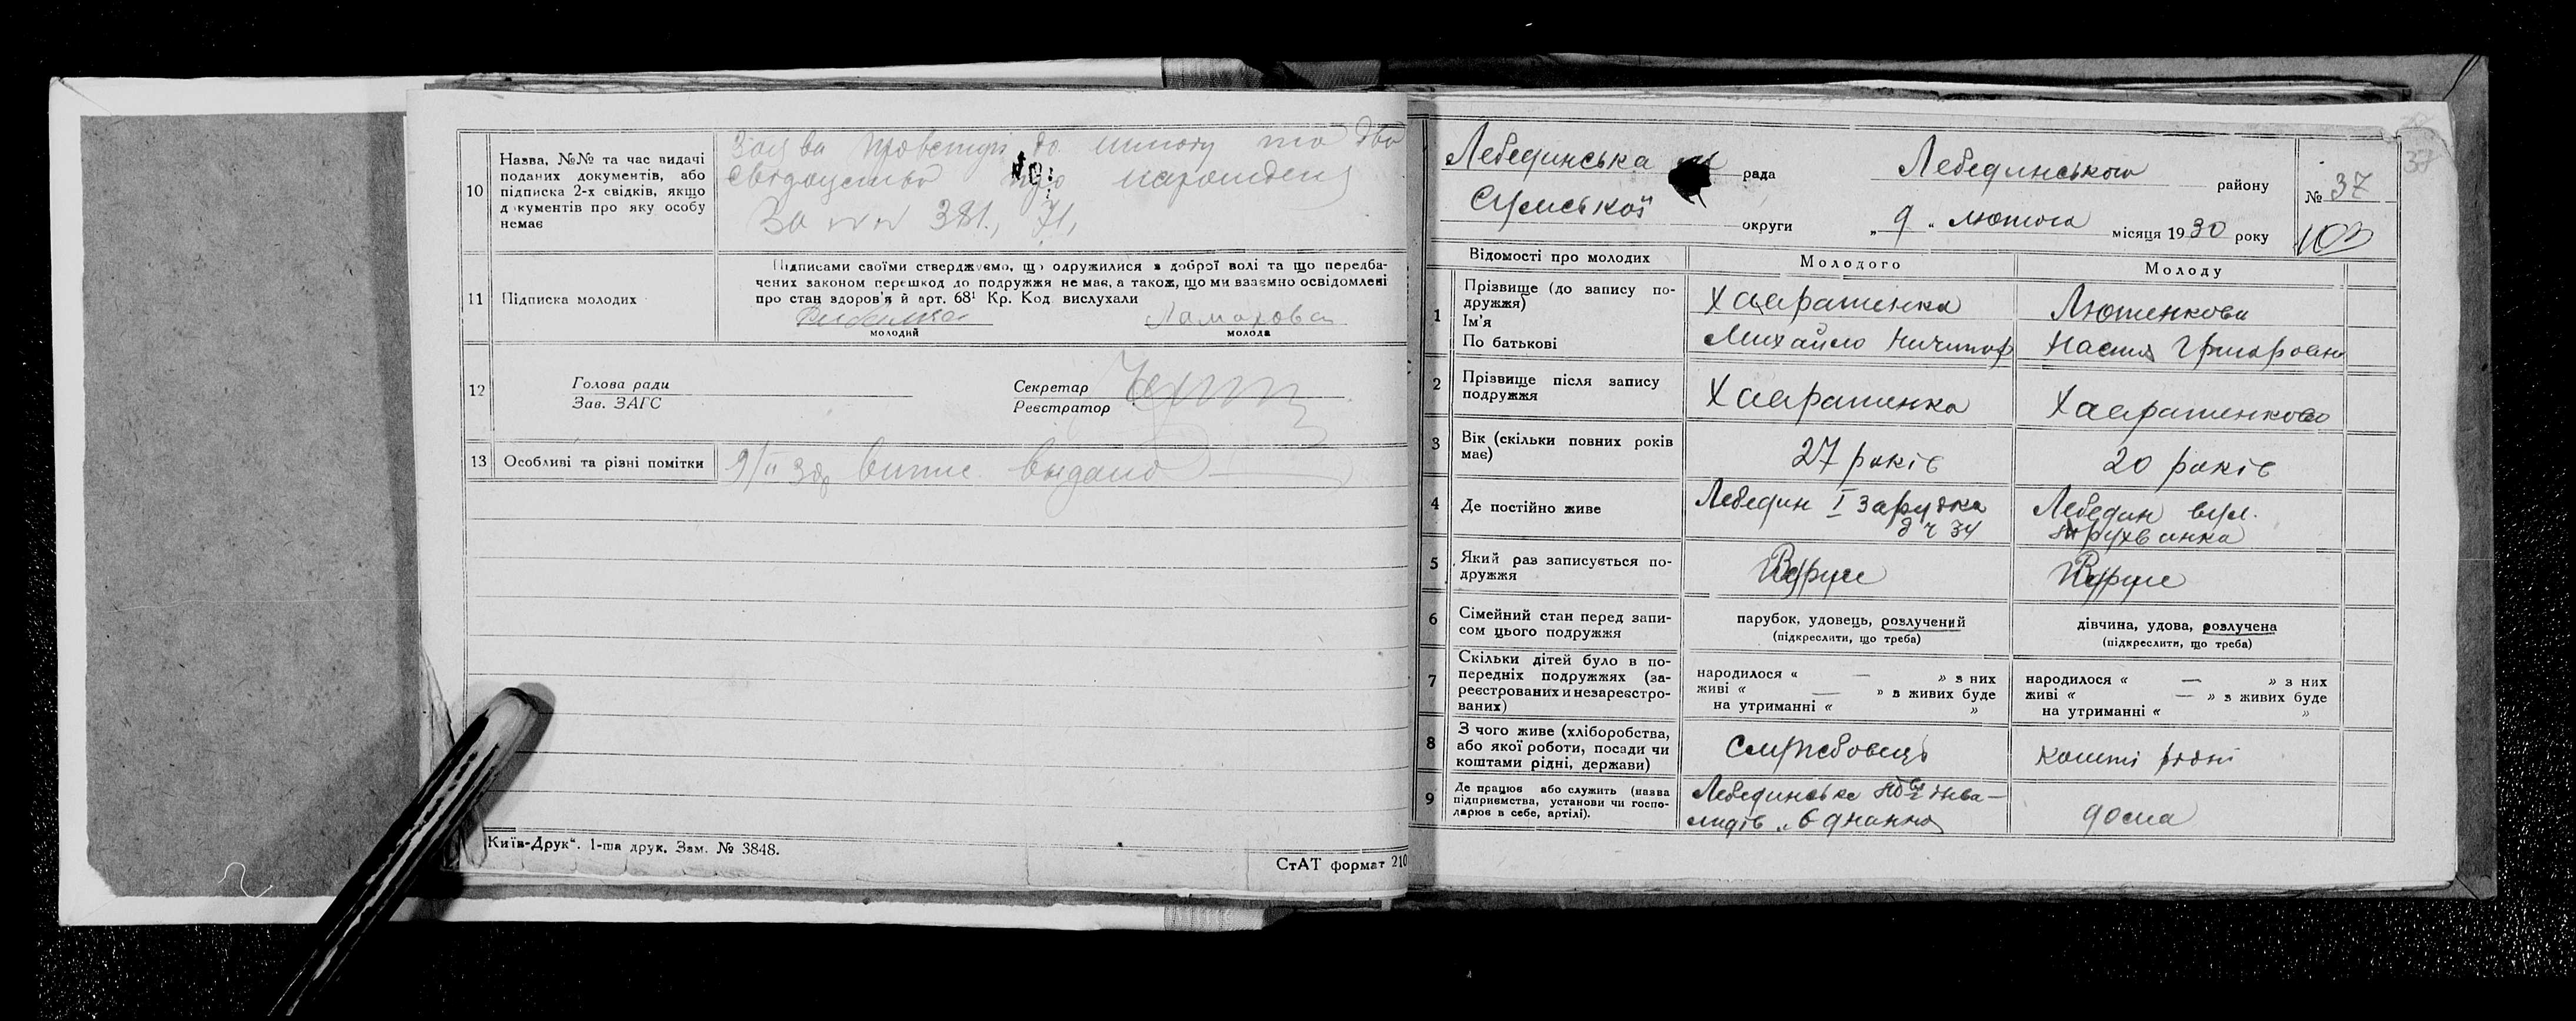 10
Назва, №№ та час видачі
поданих документів, або
підписка 2-х свідків, якщо
д кументів про яку особу
немає
Заява до шлюбу та два
свідоцтва про народжен
За №№ 381, 71,
11
Підписка молодих
Підписами своїми стверджуємо, що одружилися з доброї волі та що передба-
чених законом перешкод до подружжя немає, а також, що ми взаємно освідомлені
про стан здоров'я й арт. 68¹ Кр. Код вислухали
молодий
молода
12
Голова ради
Зав. ЗАГС
Секретар
Реєстратор
13
Особливі та різні помітки
9/II 30р випис видано
Київ-Друк“. 1-ша друк. Зам. № 3848.
СтАТ формат 210
37
Лебединська рада Лебединського району
№ 37
Сумської округи „ 9 “ лютого місяця 1930 року
103
Відомості про молодих
Молодого
Молоду
1
Прізвище (до запису по-
дружжя)
Ім'я
По батькові
Михайло Ничипор
Лютенкова
Настя Григоровна
2
Прізвище після запису
подружжя
3
Вік (скільки повних років
має)
27 років
20 років
4
Де постійно живе
Лебедин I Зарудка
д ч 34
Лебедин вул.
5
Який раз записується по-
дружжя
6
Сімейний стан перед запи-
сом цього подружжя
парубок, удовець, розлучений
(підкреслити, що треба)
дівчина, удова, розлучена
(підкреслити, що треба)
7
Скільки дітей було в по-
передніх подружжях (за-
реєстрованих и незареєстро-
ваних)
народилося « — » з них
живі « — » з живих буде
на утриманні « »
народилося « — » з них
живі « — » з живих буде
на утриманні « »
8
З чого живе (хліборобства,
або якої роботи, посади чи
коштами рідні, держави)
Службовець
Кошти рідні
9
Де працює або служить (назва
підприємства, установи чи госпо-
дарює в себе, артілі).
Лебединське інва-
лидів „Єднання
дома